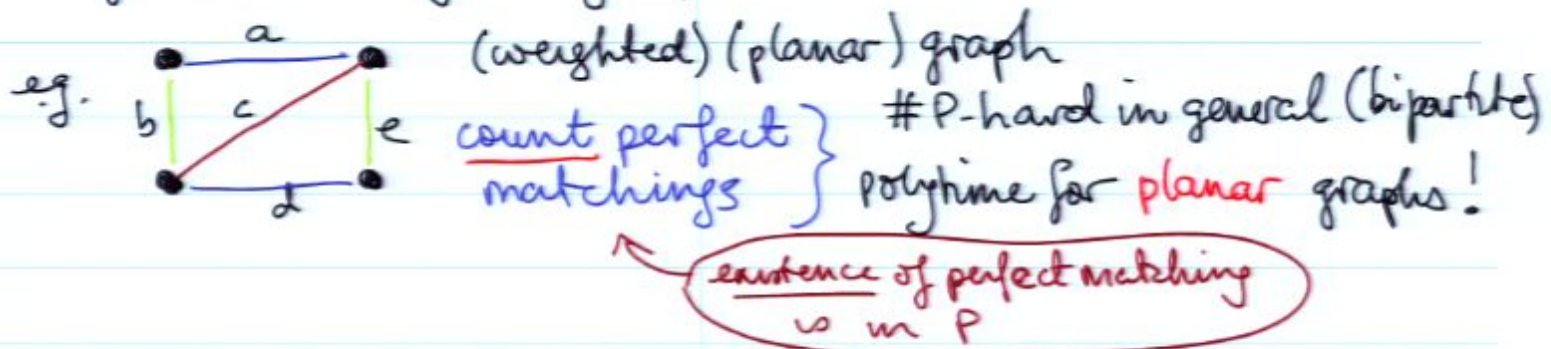 e.g.
a
b
c
e
d
(weighted) (planar) graph
count perfect
matchings
#P-hard in general (bipartite)
polytime for planar graphs!
existence of perfect matching
is in P